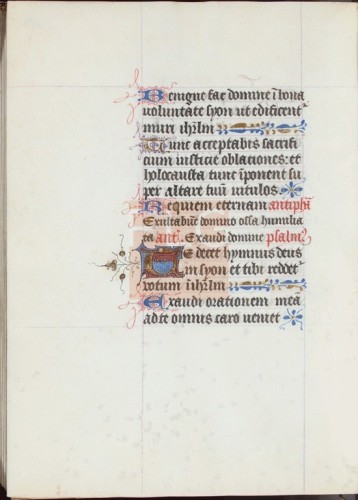 Benigne fac domine ī bona
voluntate syon ut edificent᷑
muri ihrl̄m
Tunc acceptabis sacrifi
cium iusticie oblaciones: et
holocausta tunc īponent su
per altare tuū vitulos
Requiem eternam antiphā
Exultabūt domino ossa humilia
ta ant̄. Exaudi domine psalm⁹
Te decet hymnus deus
in syon et tibi reddet᷑
votum ī ihrl̄m
Exaudi orationem meā
ad te omnis caro veniet